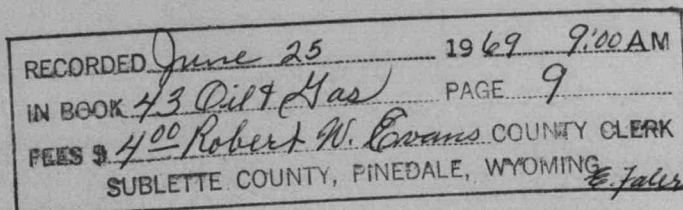 RECORDED June 25 1969 9:00 AM
IN BOOK 43 Oil & Gas PAGE 9
FEES $ 4.00 Robert W. Evans COUNTY CLERK
SUBLETTE COUNTY, PINEDALE, WYOMING E. Faler